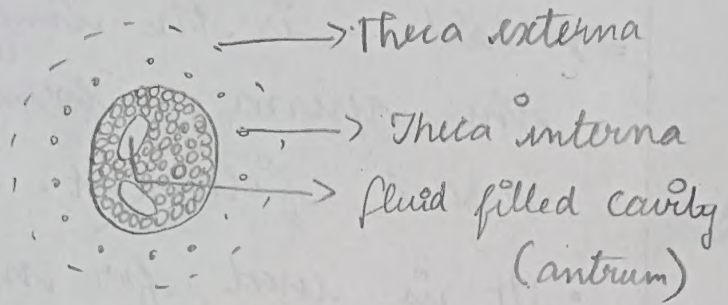 Theca externa
Theca interna
fluid filled cavity
(antrum)